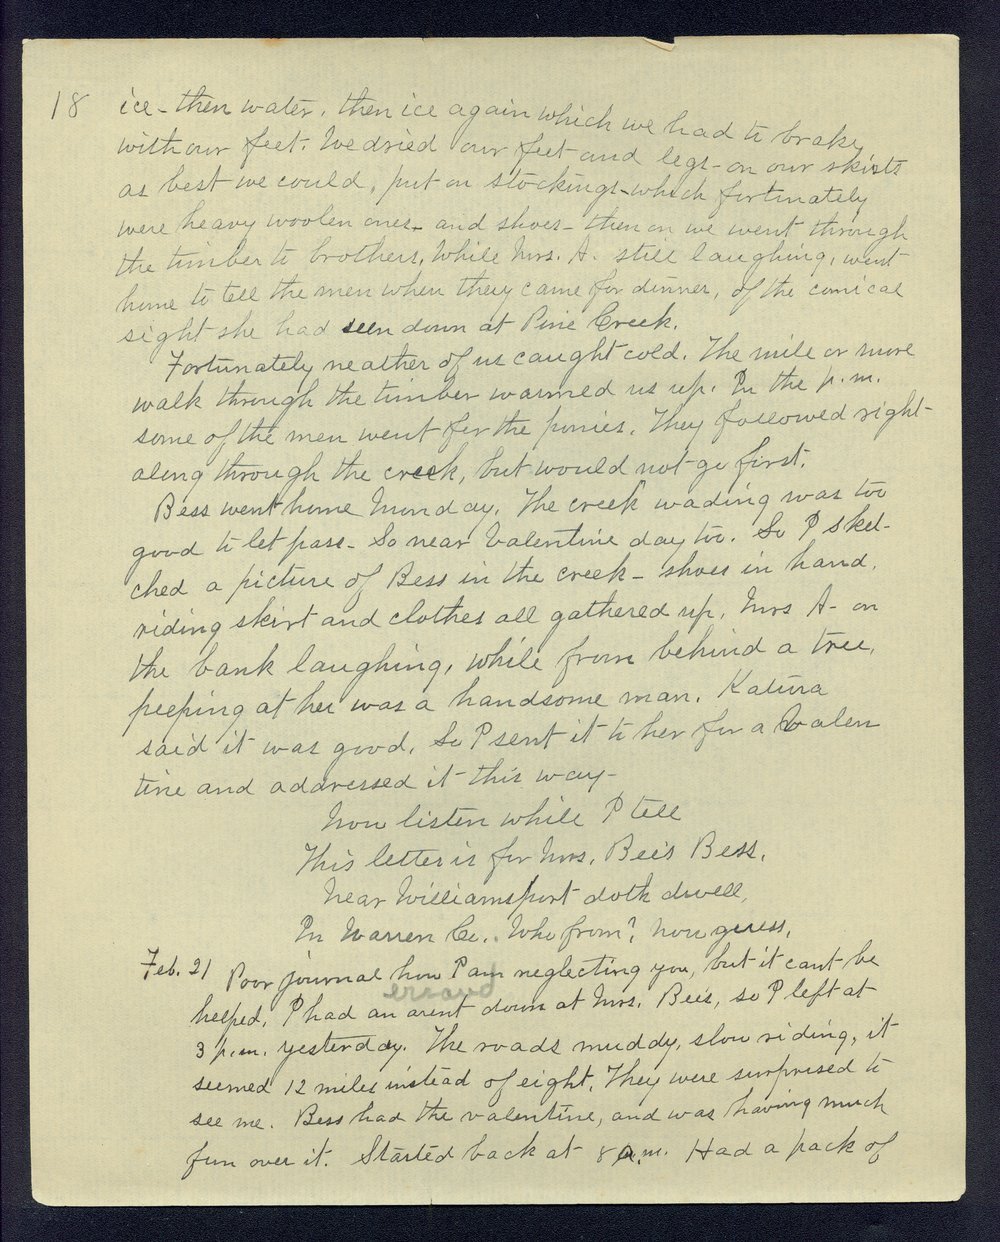 18 ice - then water, then ice again which we had to brake
with our feet. We dried our feet and legs - on our skirts
as best we could, put on stockings - which fortunately
were heavy woolen ones - and shoes - then on we went through
the timber to brothers, While Mrs. A. still laughing, went
home to tell the men when they came for dinner, of the comical
sight she had seen down at Pine Creek.
Fortunately neather of us caught cold. The mile or more
walk through the timber warmed us up. In the p.m.
some of the men went for the ponies. They followed right
along through the creek, but would not go first.
Bess went home Monday. The creek wading was too
good to let pass - So near Valentine day too. So I sket-
ched a picture of Bess in the creek - shoes in hand,
riding skirt and clothes all gathered up, Mrs A - on
the bank laughing, while from behind a tree,
peeping at her was a handsome man. Katura
said it was good. So I sent it to her for a Valen
tine and addressed it this way -
Now listen while I tell
This letter is for Mrs. Bee's Bess,
Near Williamsport doth dwell,
In Warren Co., Who from? Now guess.
Feb. 21 Poor journal how I am neglecting you, but it cant be
errand
helped. I had an arent down at Mrs. Bee's, so I left at
3 p.m. yesterday. The roads muddy, slow riding, it
seemed 12 miles instead of eight. They were surprised to
see me. Bess had the valentine, and was having much
fun over it. Started back at 8 a.m. Had a pack of